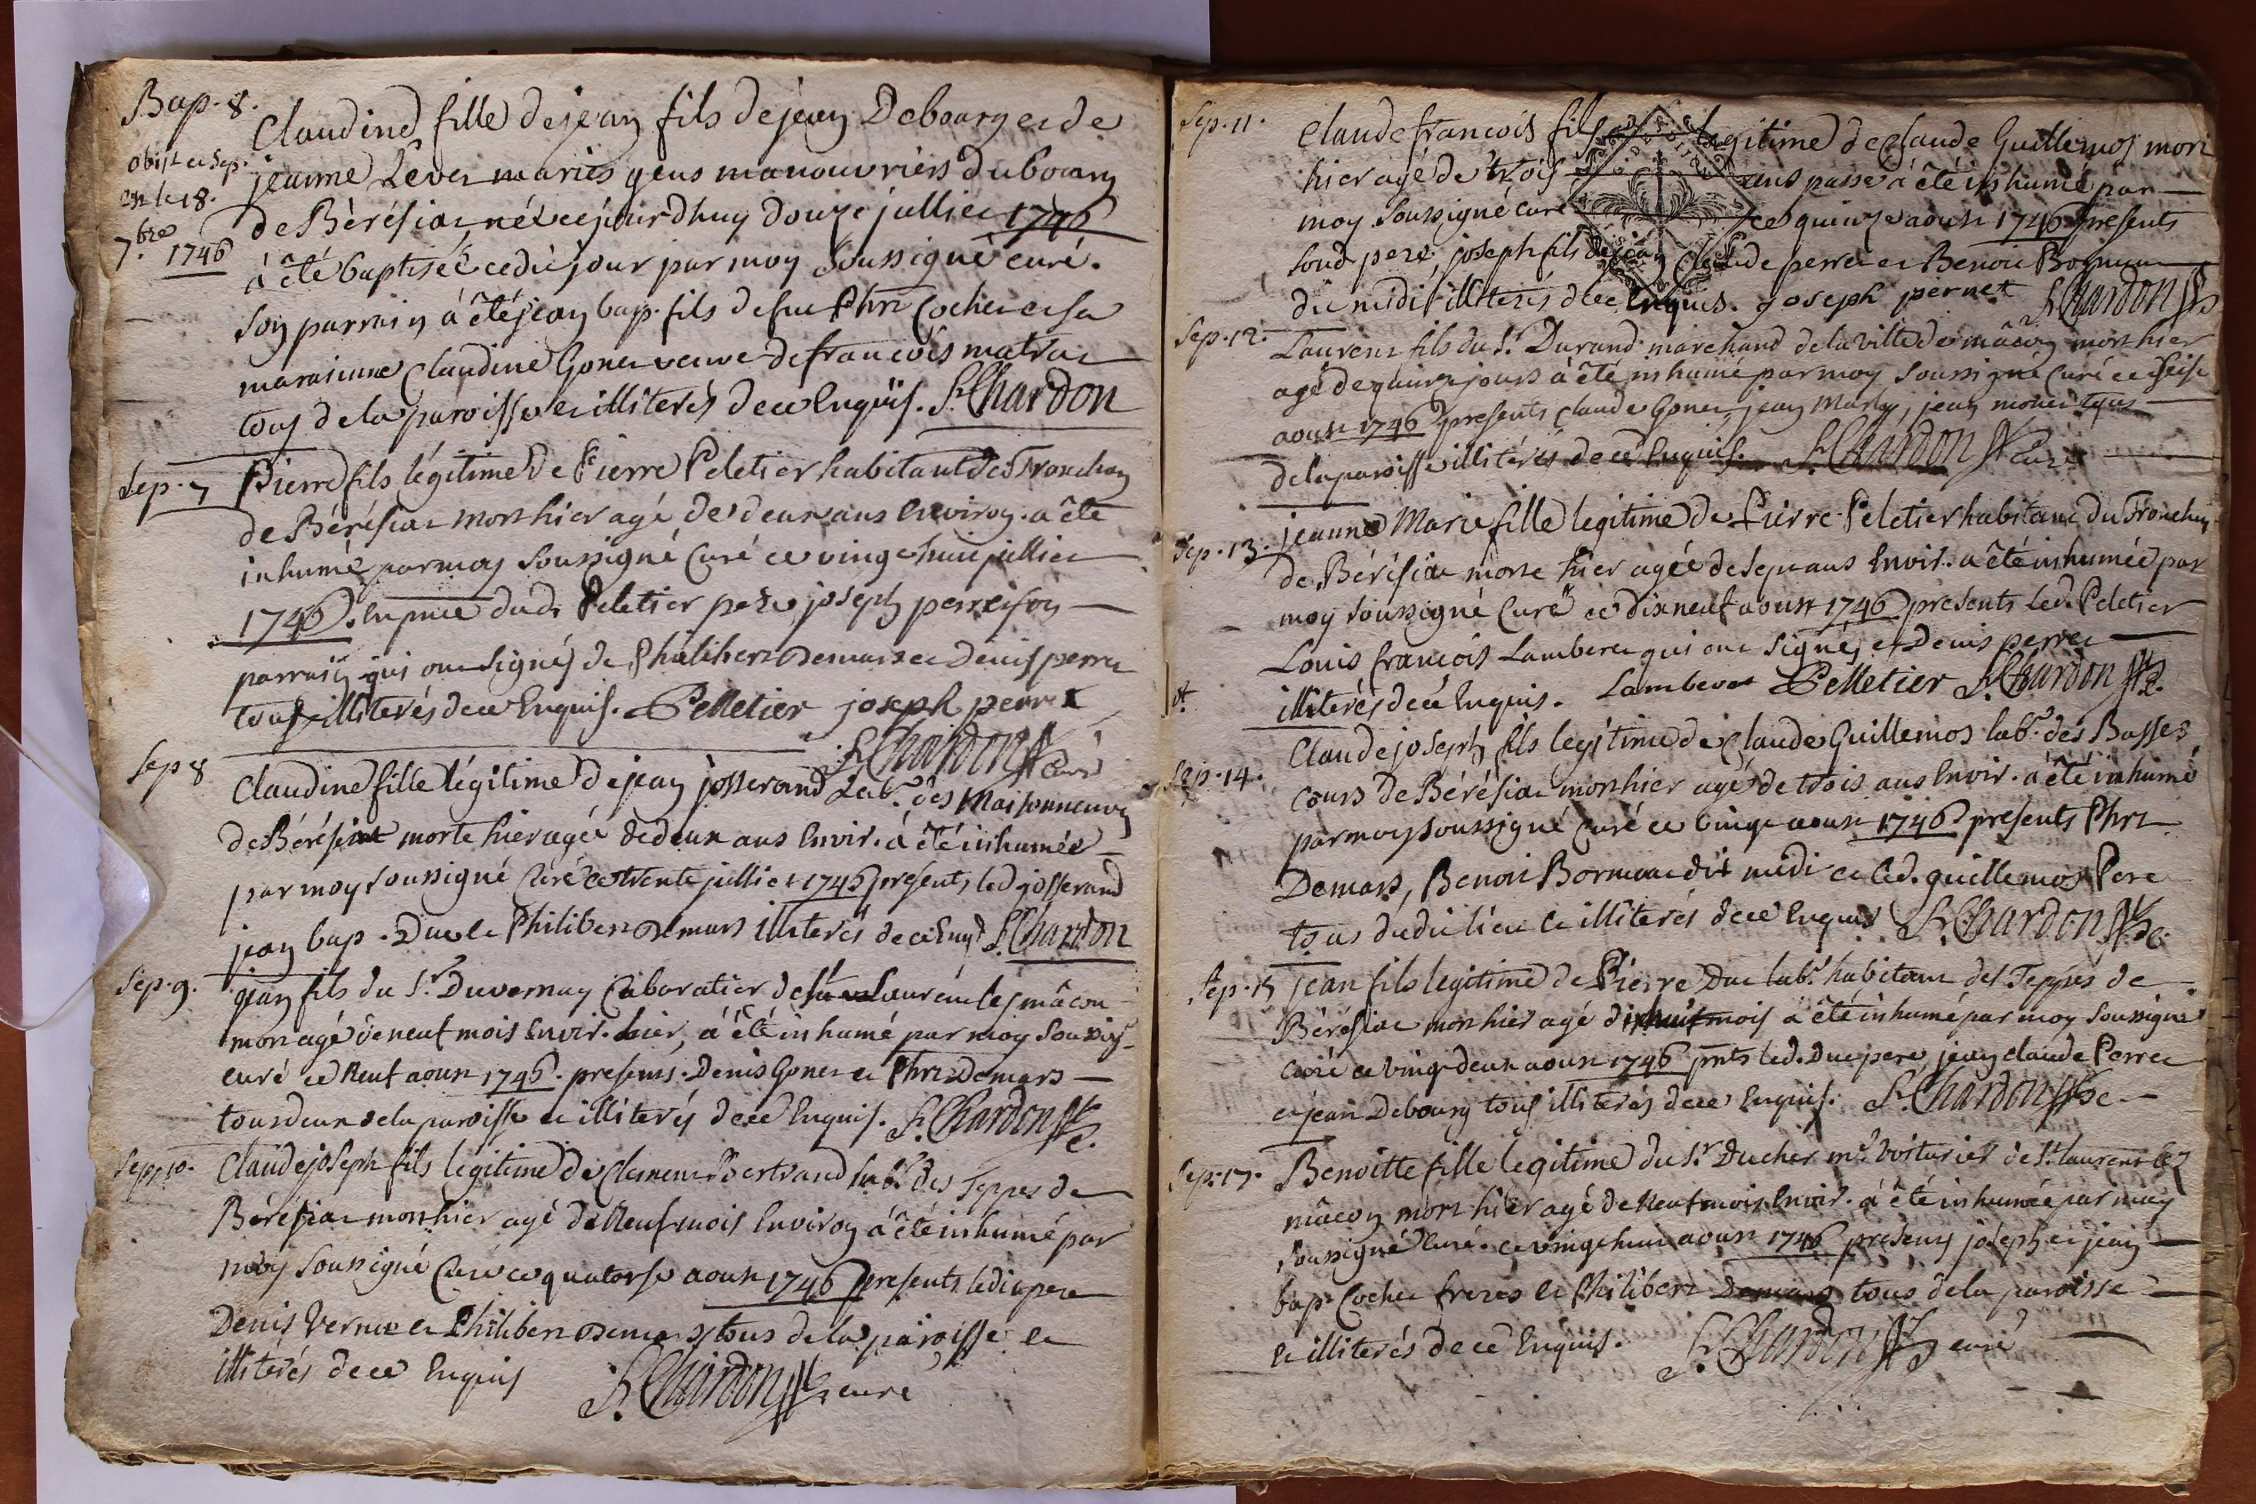 Bap. 8.
obiit et Sep.
est le 18.
7.bre 1746
Claudine fille de jean fils de jean Debourg et de
jeanne Levet mariés gens manouvriers du bourg
de Bérésiat, née cejourdhuy douze jullier 1746
à été baptisée cedit jour par moy soussigné curé.
son parrain à été jean bap. fils de feu Phrt Cochet et sa
maraienne Claudine Gonet veuve de françois matrat
tous de la paroisse et illiterés de ce Enquis. S. Chardon
Sep. 7
Pierre fils légitime de Pierre Peletier habitant de Tronchon
de Bérésiat mort hier agé de deux ans Environ. a été
inhumé par moy soussigné Curé ce vingt huit jullier
1746. En pnce dud. Peletier pere, joseph perret son
parrain qui ont signés de Philibert Demars et Denis perret
tous illiterés de ce Enquis. Pelletier joseph perret
S. Chardon Curé
Sep 8
Claudine fille légitime de jean josserand Lab.r des Maisonneuves
de Bérésiat morte hier agée de deux ans Envir. à été inhumée
par moy soussigné Curé ce trente jullier 1746 présents led. josserand
jean bap. Duc et Philibert Demars illiterés de ce Enq. S. Chardon
Sep. 9.
jean fils du S.r Duvernay Cabaratier de St Laurent les mâcon
mort agé de neuf mois Envir. hier, à été inhumé par moy soussig.
curé ce Neuf aoust 1746. presents. Denis Gonet et Phrt Demars
tous deux de la paroisse et illiterés de ce Enquis. S. Chardon
Sep. 10.
Claude joseph fils legitime de Clement Bertrand lab.r des Teppes de
Bérésiat mort hier agé de Neuf mois Environ à été inhumé par
moy soussigné Curé ce quatorse aoust 1746 presents ledit pere
Denis Vernet et Philibert Demars tous de la paroisse et
illiterés de ce Enquis S. Chardon curé
Sep. 11.
Claude francois fils legitime de Claude Guillemos mort
hier agé de trois ans passé à été inhumé par
moy soussigné curé ce quinze aoust 1746 presents
joseph fils Claude perret et Benoit
dit midi, illiterés de ce Enquis. joseph pernet S. Chardon
Sep. 12.
Laurent fils du S.r Durand marchand de la ville de mâcon mort hier
agé de quinze jours à été inhumé par moy soussigné Curé ce seise
aoust 1746 presents Claude Gonet, jean Marly, jean monet tous
de la paroisse illiterés de ce Enquis. S. Chardon Curé
Sep. 13.
jeanne Marie fille legitime de Pierre Peletier habitant du Tronchon
de Bérésiat morte hier agée de sept ans Envir. a été inhumée par
moy soussigné Curé ce dix neuf aoust 1746 presents led. Peletier
Louis francois Lamberet qui ont signés et Denis perret
illiterés de ce Enquis. Lamberet Pelletier S. Chardon
Sep. 14.
Claude joseph fils legitime de Claude Guillemos lab.r des Basses
cours de Bérésiat mort hier agé de trois ans Envir. a été inhumé
par moy soussigné Curé ce vingt aoust 1746 presents Phrt
Demars, Benoit dit midi et led. guillemos Pere
tous dudit lieu et illiterés de ce Enquis S. Chardon
Sep. 15
jean fils legitime de Pierre Duc lab.r habitant des Teppes de
Bérésiat mort hier agé dixhuit mois à été inhumé par moy soussigné
curé ce vingt deux aoust 1746 pnts led. Duc pere, jean claude Perret
et jean Debourg tous illiterés de ce Enquis. S. Chardon
Sep. 17.
Benoitte fille legitime du S.r Ducher m.e voiturier de St. laurent lez
mâcon mort hier agé de Neuf mois Envir. à été inhumée par moy
soussigné Curé. ce vingt huit aoust 1746 presents joseph et jean
bap. Cochet freres et Philibert Demars tous de la paroisse
et illiterés de ce Enquis. S. Chardon curé